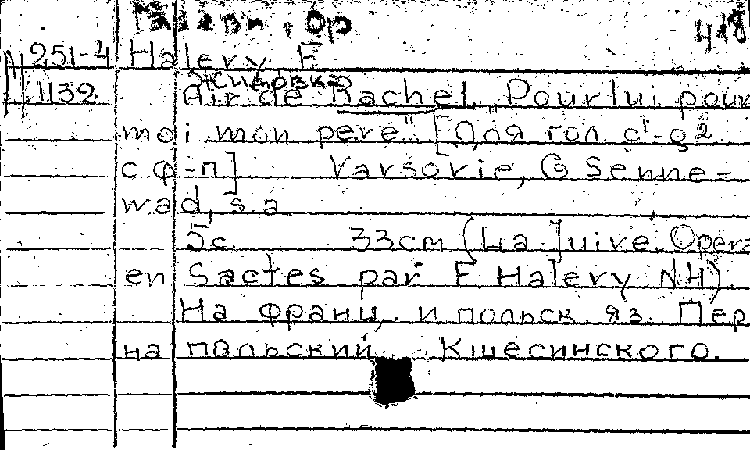 Галеви, ор 418
N 251-4 Halevy F
11132 Жидовка
Air de Rachel "Pourlui, pour
moi mon pere" [Для гол c¹-g²
с ф-п] Varsovie, G Senne=
wad, s.a
5с 33cm (La Juive. Opera
en 5actes par F Halevy N4).
На франц. и польск яз. Пер
на польский Кшесинского.